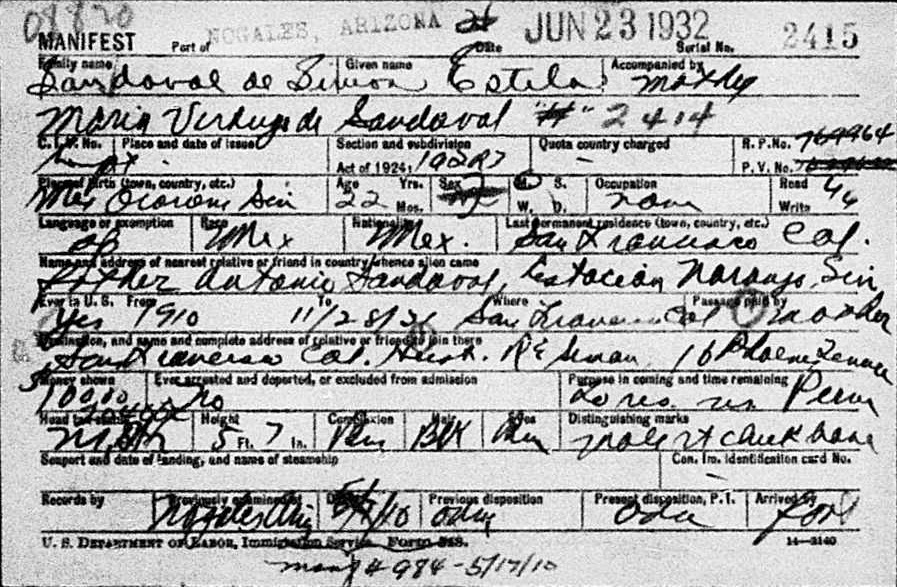 08820
NOGALES, ARIZONA JUN 23 1932
MANIFEST Port of Date Serial No. 2415
Family name Given name Accompanied by
Sandoval de Simon Estela mother
Maria Verdugo de Sandoval "#" 2414
C.I.V. No. Place and date of issue Section and subdivision Quota country charged R. P. No. 769964
Act of 1924: P. V. No.
Place of birth (town, country, etc.) Age Yrs. Sex M. S. Occupation Read
Mex Sin 22 Mos. W. D. none Write
Language or exemption Race Nationality Last permanent residence (town, country, etc.)
Mex Mex. San Francisco Cal.
Name and address of nearest relative or friend in country whence alien came
father Antonio Sandoval, Estacion Naranjo, Sin
Ever in U. S. From To Where Passage paid by
Yes 1910 San Francisco Cal mother
Destination, and name and complete address of relative or friend to join there
San Francisco Cal. Husb. R E Simon 16 Phoenix
Money shown Ever arrested and deported, or excluded from admission Purpose in coming and time remaining
no To res. Perm
Head tax status Height Complexion Hair Eyes Distinguishing marks
5 Ft. 7 In. Blk mole rt cheek bone
Seaport and date of landing, and name of steamship Con. Im. Identification card No.
Records by Previously examined at Date Previous disposition Present disposition, P. I. Arrived by
Nogales Ariz
U. S. DEPARTMENT OF LABOR, Immigration Service Form 548. 14—2140
# 984 - 5/17/10